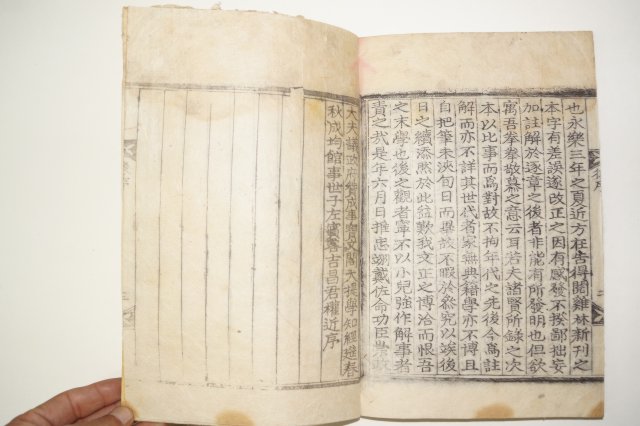 也永樂三年之夏近方在告得閱雞林新刊之
本字有差誤遂改正之因有感發不揆鄙拙妄
加註解於逐章之後者非能有所發明也但欲
寓吾拳拳敬慕之意云耳若夫諸賢所錄之次
本以比事而爲對故不拘年代之先後今爲註
解而亦不詳其世代者家無典籍學亦不博且
自把筆未浹旬日而畢故不暇於叅究以竢後
日之續添然於此益歎我文正之博洽而恨吾
之末學也後之觀者寧不以小兒強作解事者
責之哉是年六月日推忠翊戴佐命功臣崇政
大夫議政府贊成事寶文閣大提學知經筵春
秋成均館事世子左賓客吉昌君權近序